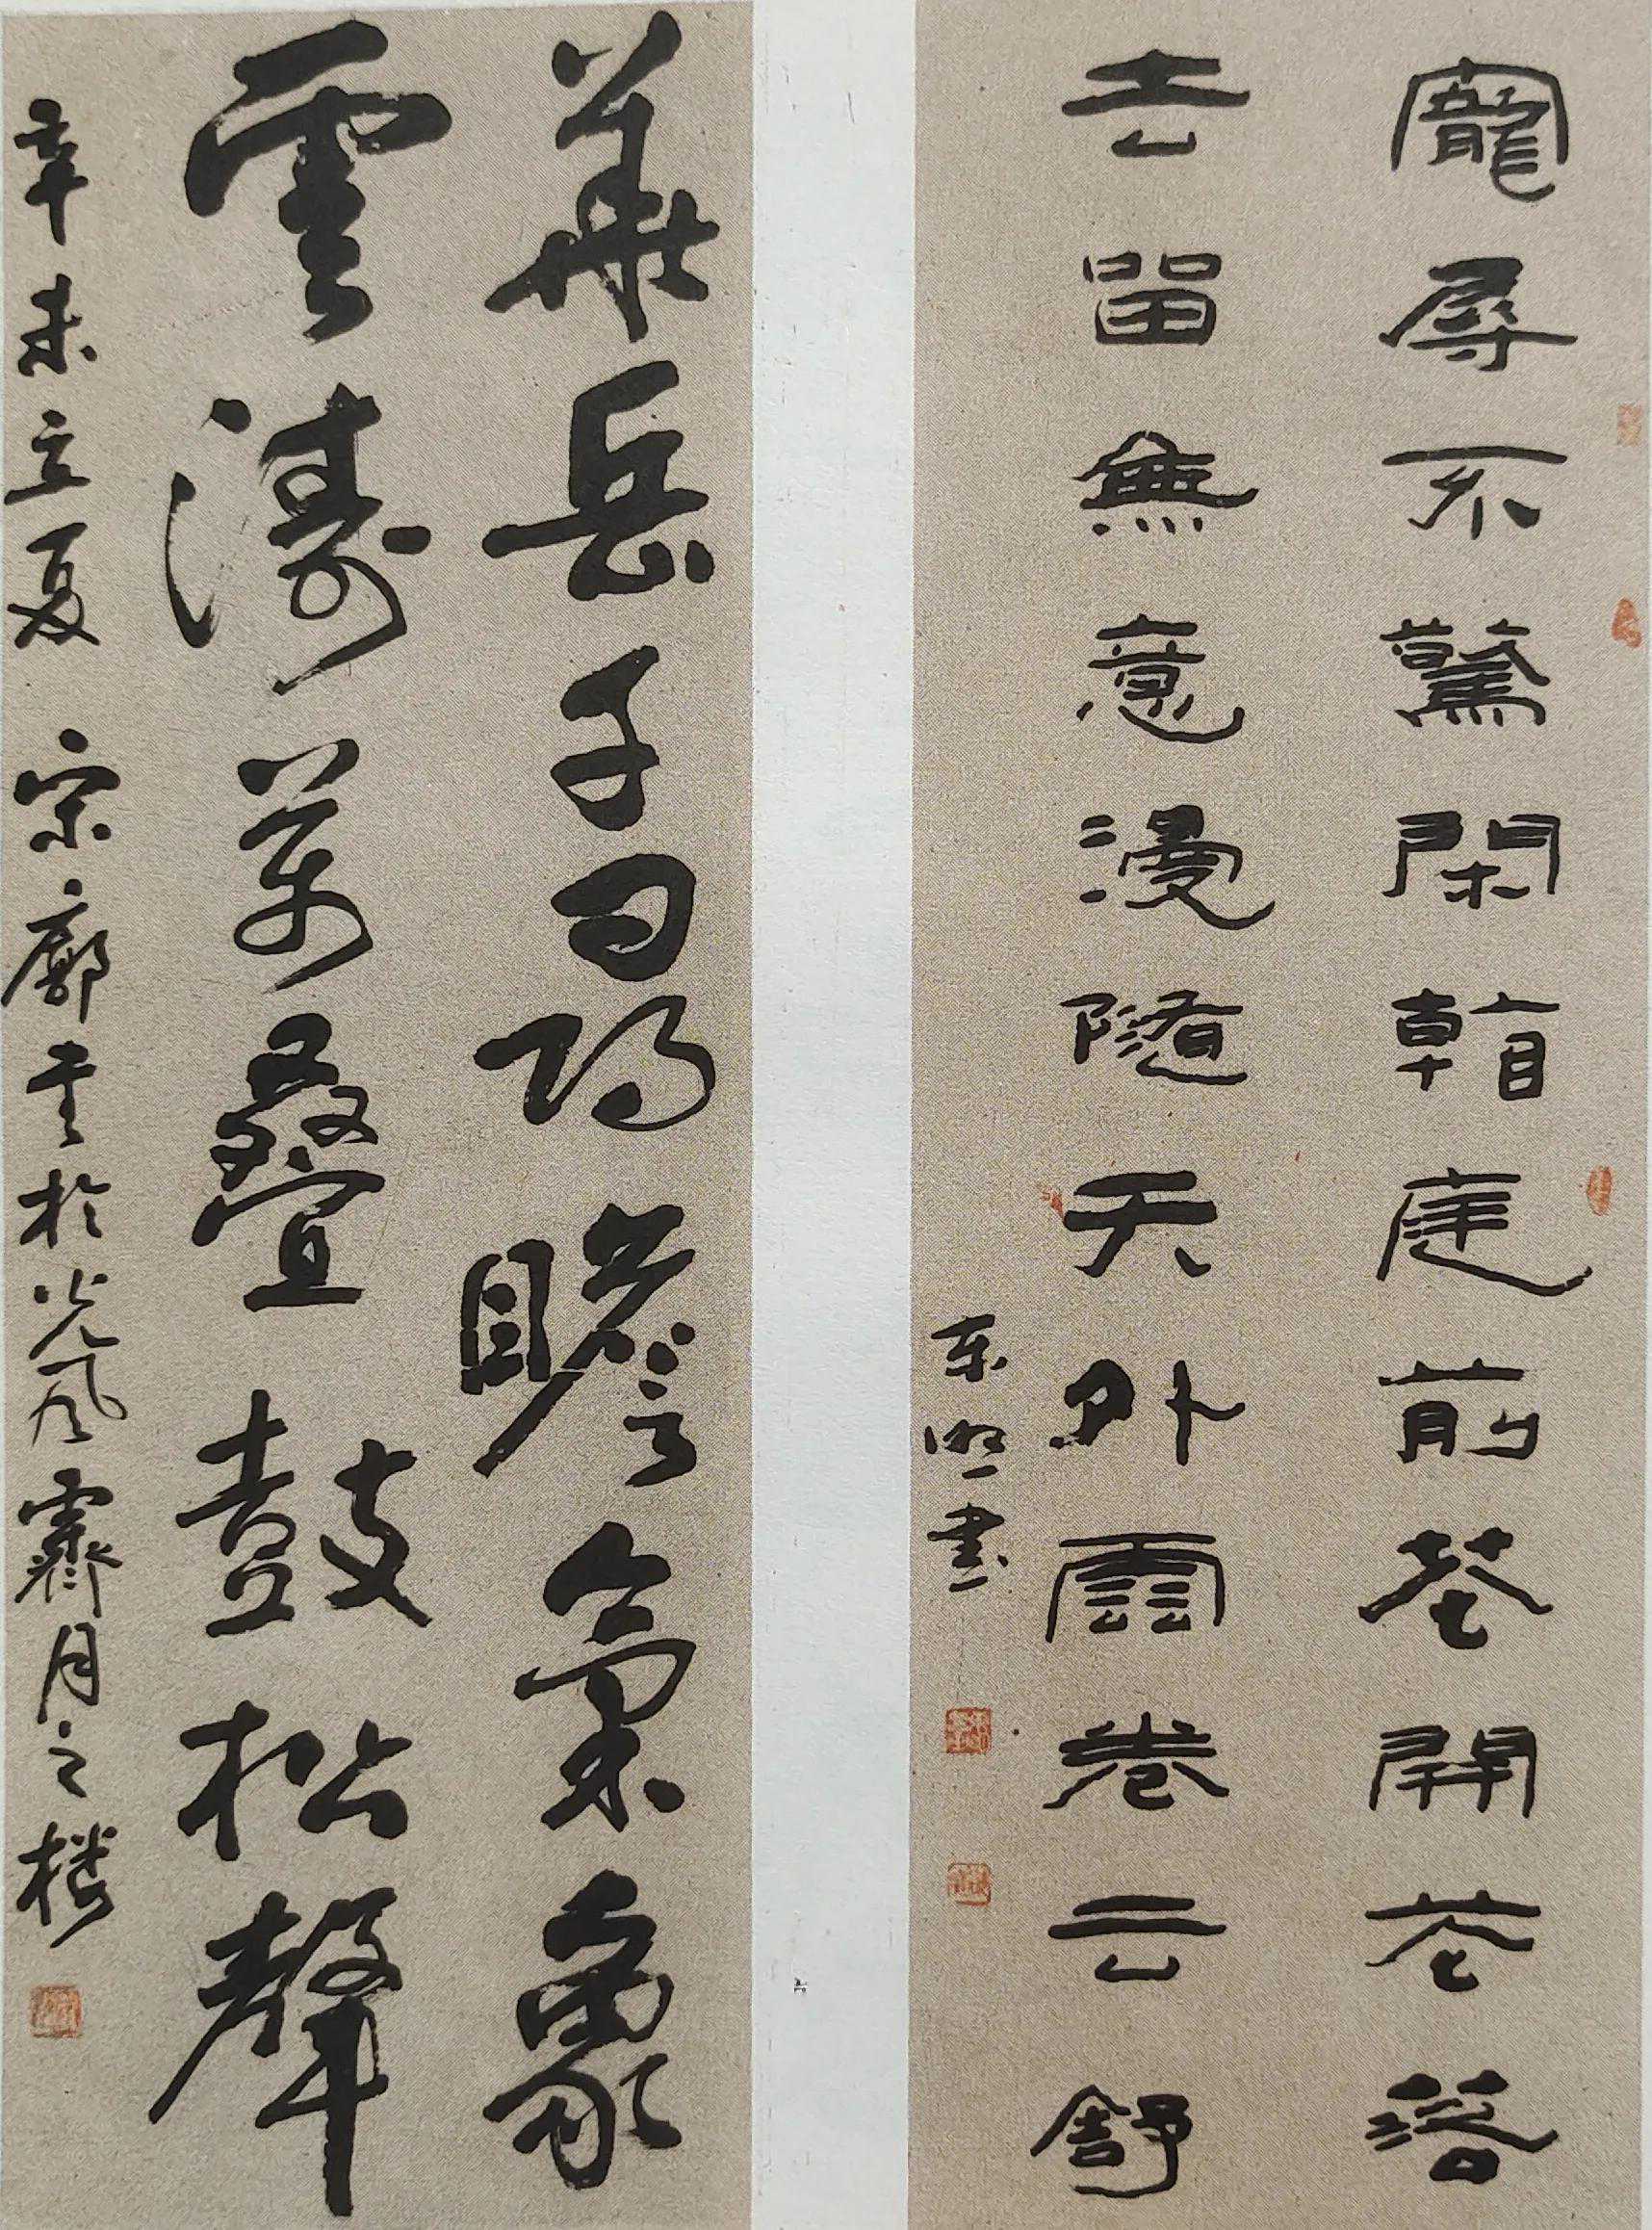 寵辱不驚閑看庭前花開花落
去留無意漫隨天外雲卷云舒
东明書
華岳千尋瞻氣象
雲濤萬叠鼓松聲
辛未立夏 宗廓書於光風霽月之樓